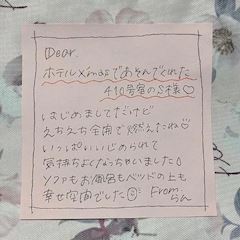 Dear.
ホテルX'masであそんでくれた
410号室のS様♡
はじめましてだけど
えちえち全開で燃えたね♡
いっぱいいじめられて
気持ちよくなっちゃいました💧
ソファもお風呂もベッドの上も
幸せ空間でした☺ From
らん